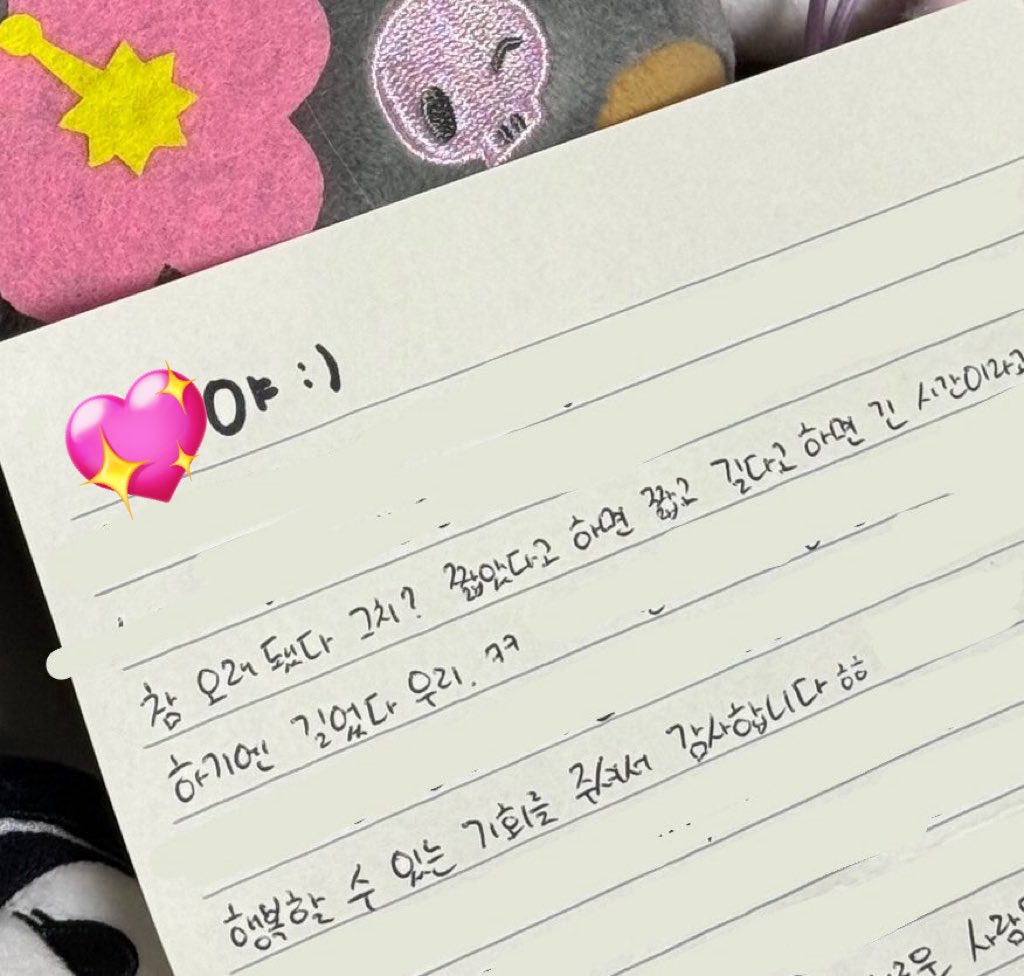 야 :)
참 오래됐다 그치? 짧았다고 하면 짧고 길다고 하면 긴 시간이라고
하기엔 길었다 우리. ㅋㅋ
행복할 수 있는 기회를 주셔서 감사합니다 ㅎㅎ